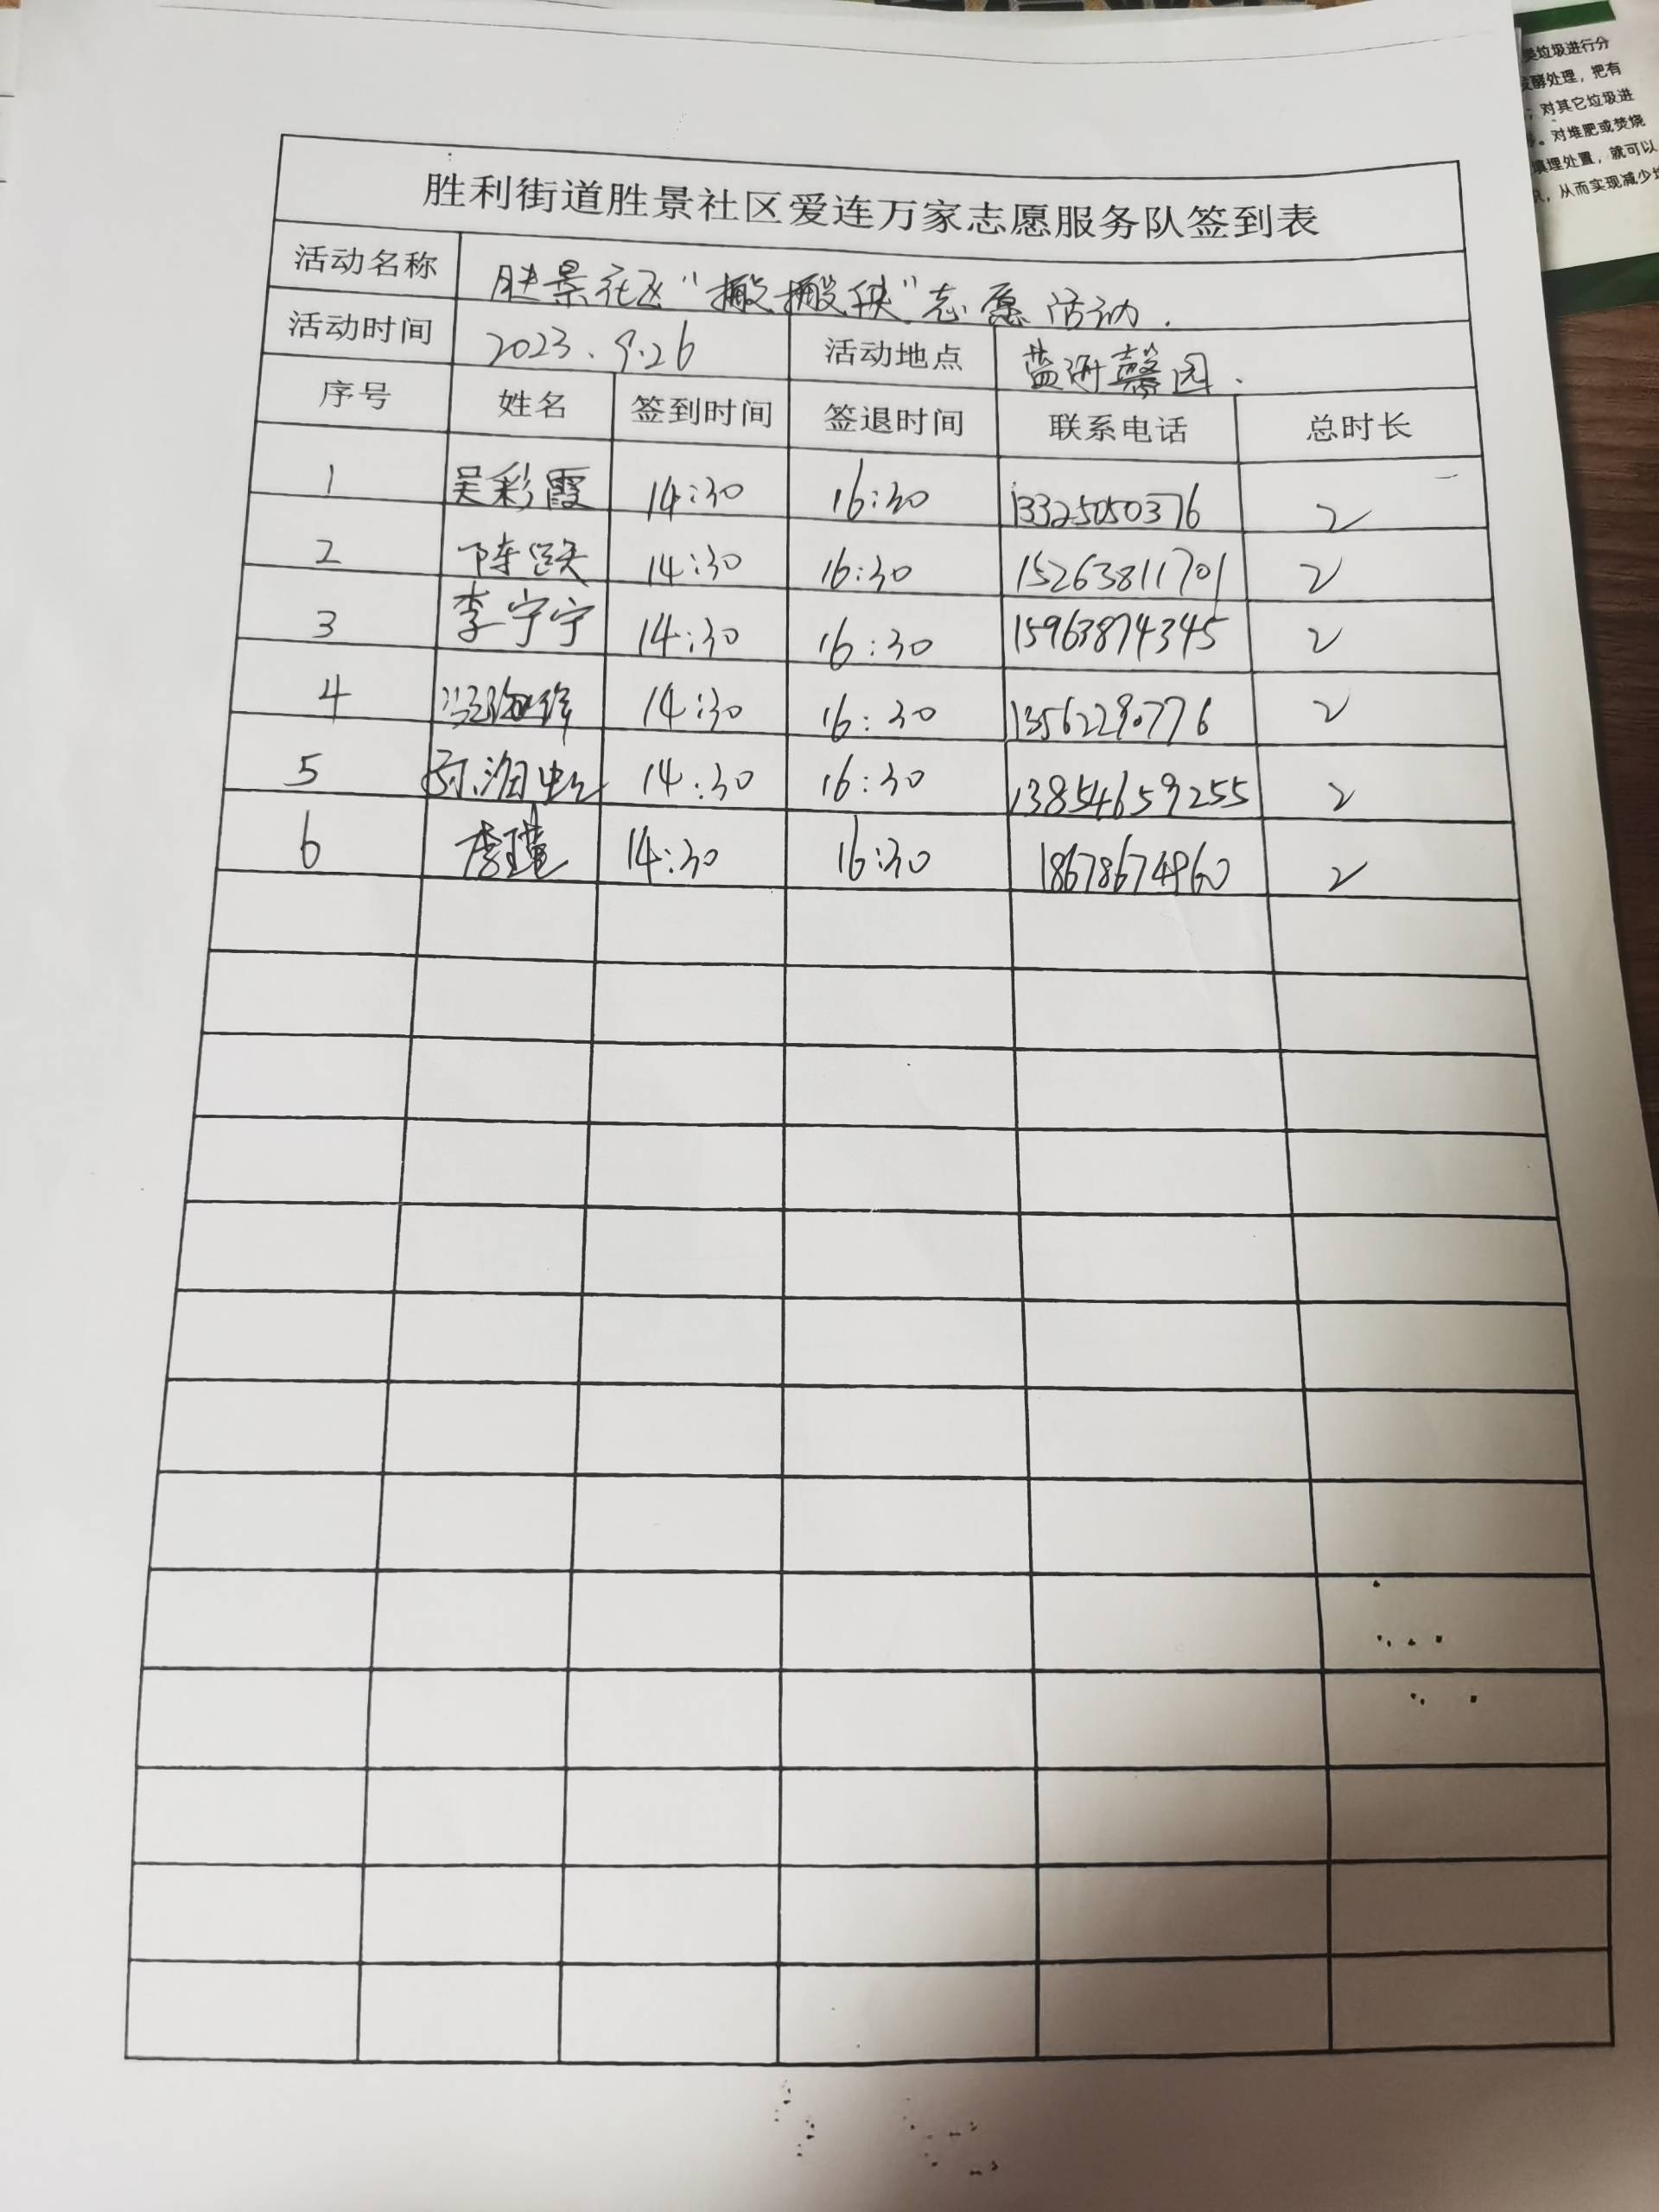 类垃圾进行分
发酵处理，把有
；对其它垃圾进
。对堆肥或焚烧
填理处置，就可以
从而实现减少垃
胜利街道胜景社区爱连万家志愿服务队签到表
活动名称 胜景社区“搬搬侠”志愿活动.
活动时间 2023.9.26 活动地点 蓝海馨园.
序号 姓名 签到时间 签退时间 联系电话 总时长
1 吴彩霞 14:30 16:30 13325050376 2
2 14:30 16:30 15263811701 2
3 李宁宁 14:30 16:30 15963874345 2
4 14:30 16:30 13562290776 2
5 14:30 16:30 13854659255 2
6 李瑾 14:30 16:30 18678674960 2